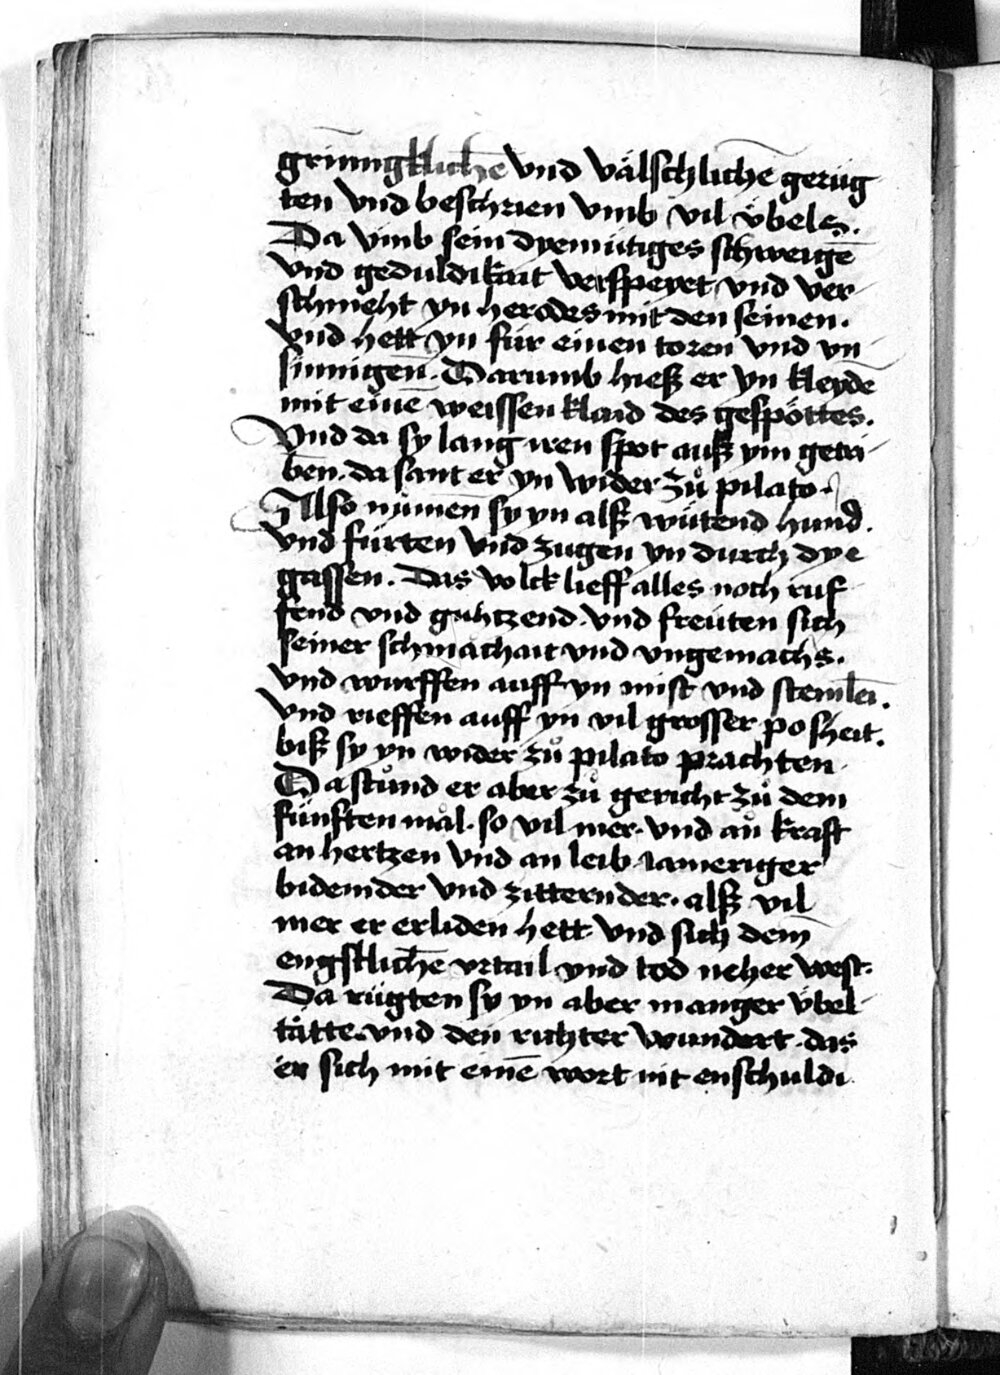 grim̄igklichē vnd välschlichē gerüg
ten vnd beschrien vmb vil v̈bels.
Da vmb sein dyemütiges schweigē
vnd geduldikait verspeyet vnd ver
schmeht yn herodes mit den seinen.
vnd hett yn für einen toren vnd vn
sinnigen̄. Darumb hieß er yn kleydē
mit einē weissen klaid des gespöttes.
Vnd da sy lang iren spot auß ym getri
ben. da sant er yn wider zů pilato.
Also nůmen sy yn alß wütend hund.
vnd fürten vnd zugen yn durch dye
gassen. Das volck lieff alles noch ruf
fend vnd guhtzend. vnd freüten sich
seiner schmachait vnd vngemachs.
vnd wurffen auff yn mist vnd steinlei̅.
vnd rieffen auff yn vil grosser posheit.
biß sy yn wider zů pilato prachten.
Da stůnd er aber zů gericht zů dem
fünften mål. so vil mer. vnd ån kraft
an hertzen vnd an leib iameriger
bidemder vnd zitternder. alß vil
mer er erliden hett vnd sich dem
engstlichē vrtail vnd tod neher west.
Da rügten sy yn aber manger v̈bel
tåtte. vnd den richter wundert. das
er sich mit einē wort nit enschuldi